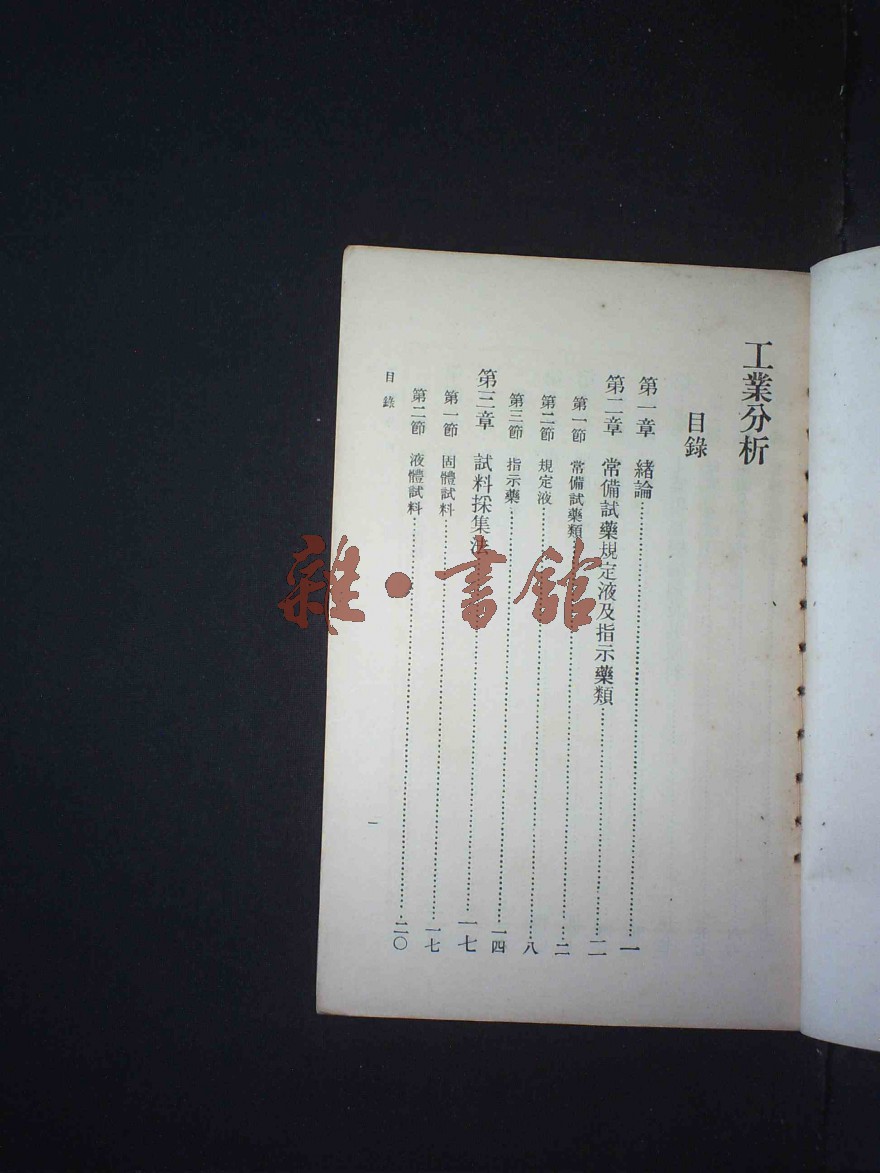 工業分析
目錄
第一章 緒論……一
第二章 常備試藥規定液及指示藥類……二
第一節 常備試藥類……二
第二節 規定液……八
第三節 指示藥……一四
第三章 試料採集法……一七
第一節 固體試料……一七
第二節 液體試料……二〇
目錄
一
雜·書館